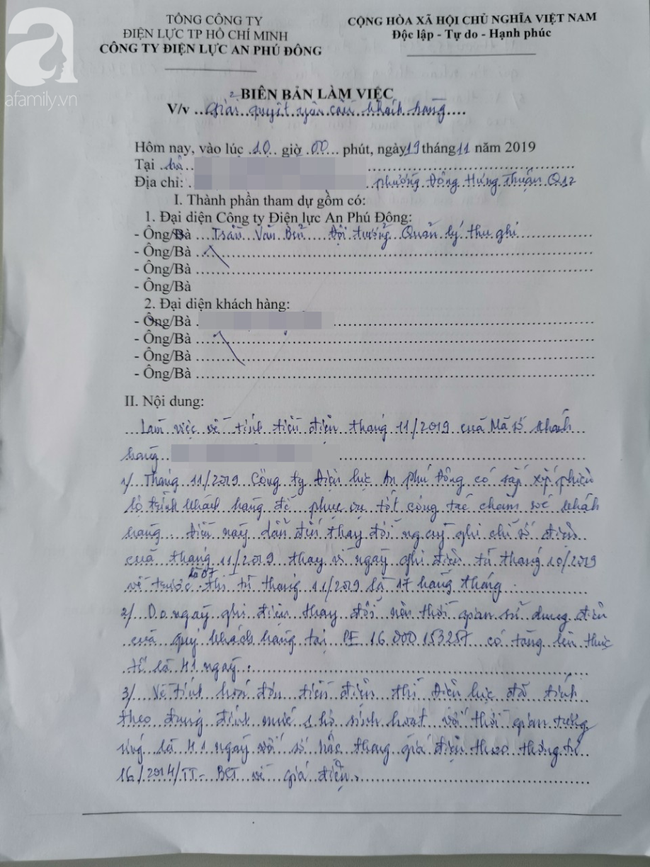 TỔNG CÔNG TY
ĐIỆN LỰC TP HỒ CHÍ MINH
CÔNG TY ĐIỆN LỰC AN PHÚ ĐÔNG
CỘNG HÒA XÃ HỘI CHỦ NGHĨA VIỆT NAM
Độc lập - Tự do - Hạnh phúc
a
afamily.vn
BIÊN BẢN LÀM VIỆC
V/v Giải quyết yêu cầu khách hàng
Hôm nay, vào lúc 10 giờ 00 phút, ngày 19 tháng 11 năm 2019
Tại
Địa chỉ: phường Đông Hưng Thuận Q12
I. Thành phần tham dự gồm có:
1. Đại diện Công ty Điện lực An Phú Đông:
- Ông/Bà Trần Văn Đội trưởng Quản lý thu ghi
- Ông/Bà
- Ông/Bà
- Ông/Bà
2. Đại diện khách hàng:
- Ông/Bà
- Ông/Bà
- Ông/Bà
- Ông/Bà
II. Nội dung:
Làm việc về tính tiền điện tháng 11/2019 của Mã số khách
hàng
1/ Tháng 11/2019 Công ty Điện lực An Phú Đông có sắp xếp phiên
lộ trình khách hàng để phục vụ tốt công tác chăm sóc khách
hàng. Điều này dẫn đến thay đổi ngày ghi chỉ số điện
của tháng 11/2019 thay vì ngày ghi điện từ tháng 10/2019
về trước là 07 thì từ tháng 11/2019 là 17 hàng tháng.
2/ Do ngày ghi điện thay đổi nên thời gian sử dụng điện
của quý khách hàng tại PE 16000153257 có tăng lên thực
tế là 41 ngày.
3/ Về tính hoá đơn tiền điện thì Điện lực đã tính
theo đúng định mức 1 hộ sinh hoạt với thời gian tương
ứng là 41 ngày với số bậc thang giá điện theo thông tư
16/2014/TT-BCT về giá điện.